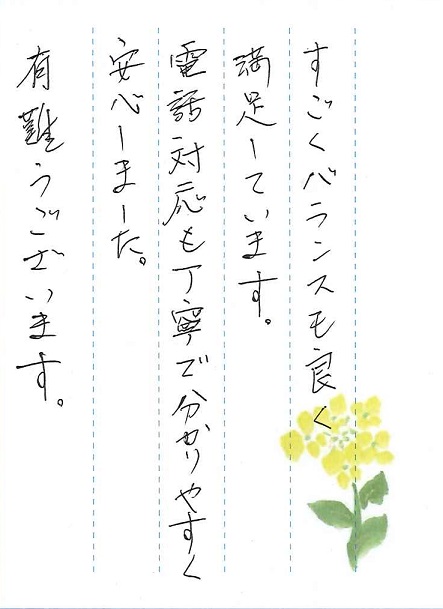 すごくバランスも良く
満足しています。
電話対応も丁寧で分かりやすく
安心しました。
有難うございます。